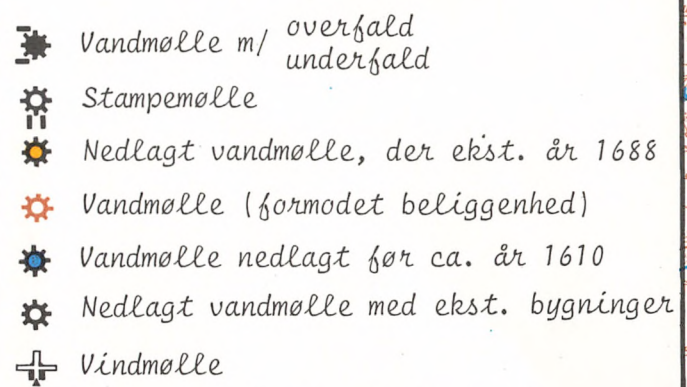 Vandmølle m/ overfald
underfald
Stampemølle
Nedlagt vandmølle, der ekst. år 1688
Vandmølle (formodet beliggenhed)
Vandmølle nedlagt før ca. år 1610
Nedlagt vandmølle med ekst. bygninger
Vindmølle